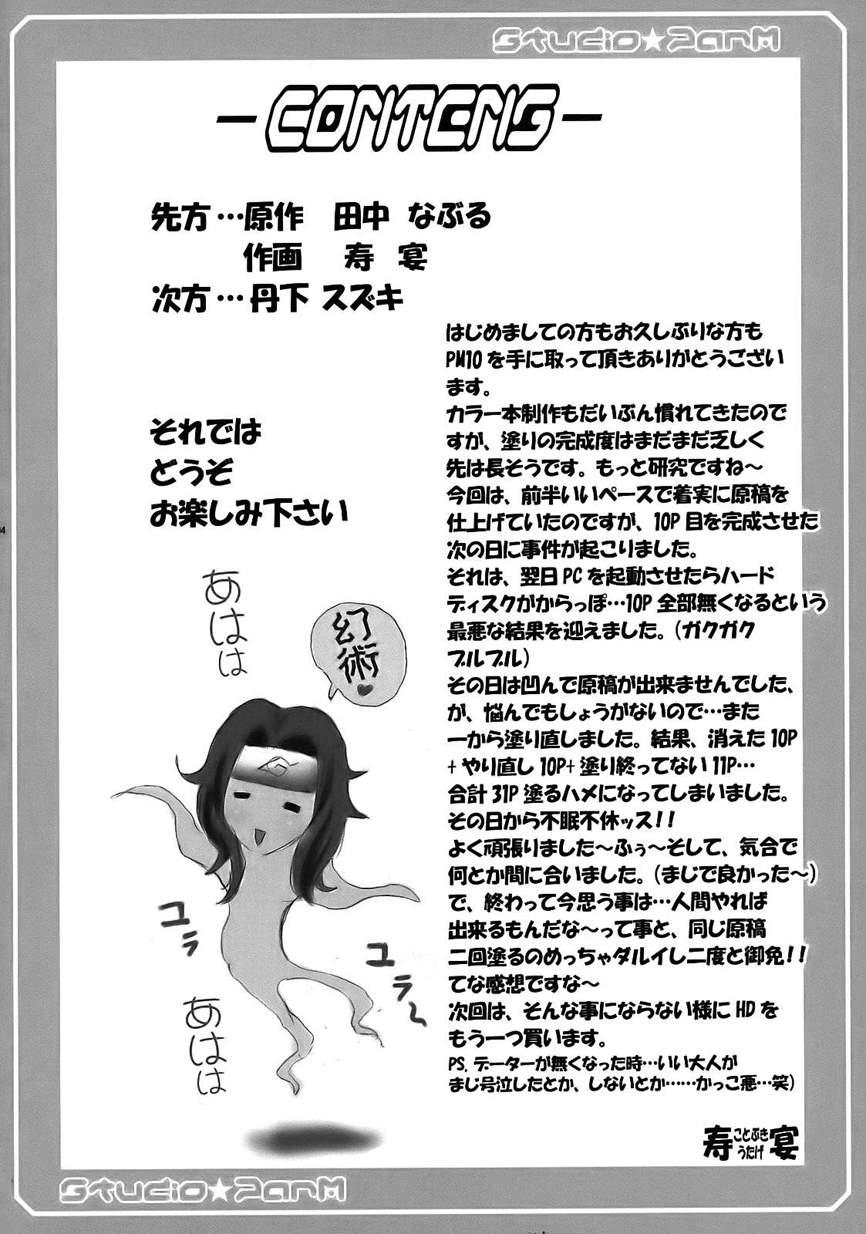 Studio★ParM
-CONTENS-
先方…原作 田中 なぶる
作画 寿 宴
次方…丹下 スズキ
それでは
どうぞ
お楽しみ下さい
はじめましての方もお久しぶりな方も
PM10を手に取って頂きありがとうござい
ます。
カラー本制作もだいぶん慣れてきたので
すが、塗りの完成度はまだまだ乏しく
先は長そうです。もっと研究ですね～
今回は、前半いいペースで着実に原稿を
仕上げていたのですが、10P目を完成させた
次の日に事件が起こりました。
それは、翌日PCを起動させたらハード
ディスクがからっぽ…10P全部無くなるという
最悪な結果を迎えました。(ガクガク
ブルブル)
その日は凹んで原稿が出来ませんでした、
が、悩んでもしょうがないので…また
一から塗り直しました。結果、消えた10P
+やり直し10P+塗り終ってない11P…
合計31P塗るハメになってしまいました。
その日から不眠不休ッス!!
よく頑張りました～ふぅ～そして、気合で
何とか間に合いました。(まじで良かった～)
で、終わって今思う事は…人間やれば
出来るもんだな～って事と、同じ原稿
二回塗るのめっちゃダルイし二度と御免!!
てな感想ですな～
次回は、そんな事にならない様にHDを
もう一つ買います。
PS.データーが無くなった時…いい大人が
まじ号泣したとか、しないとか……かっこ悪…笑)
寿 ことぶき うたげ 宴
あはは
幻術♥
ユラ
ユラ～
あはは
4
Studio★ParM